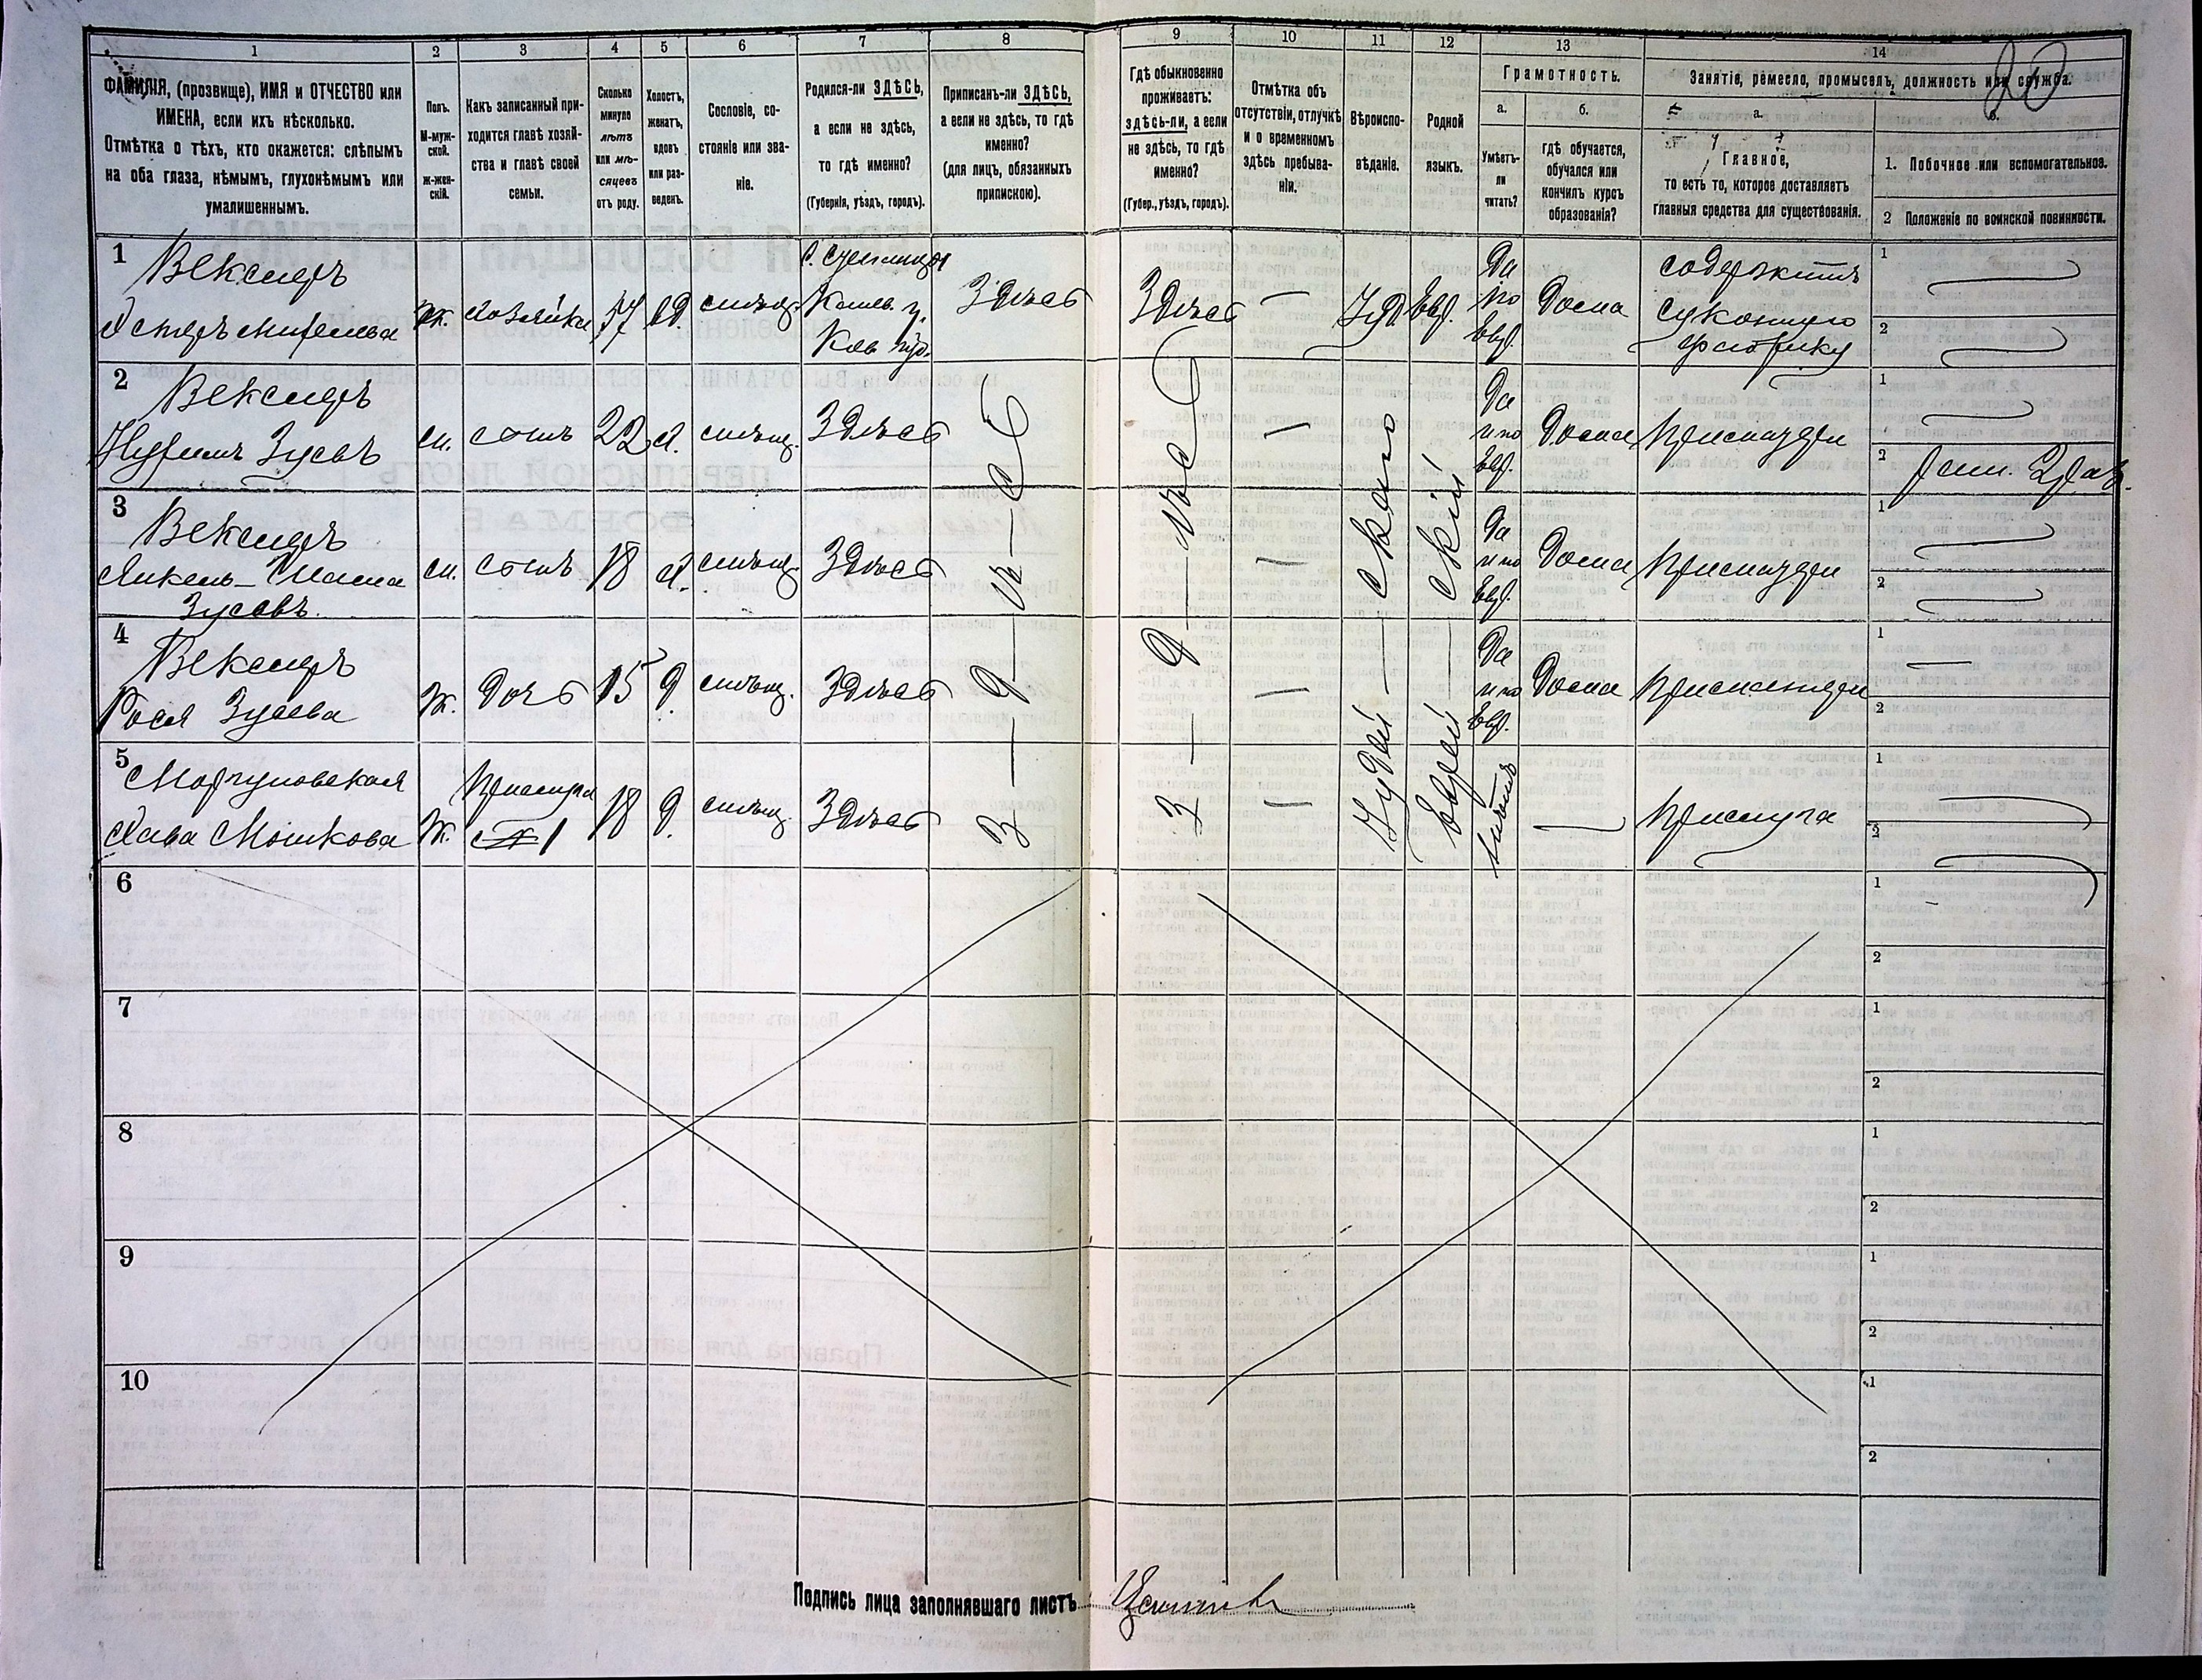 1 2 3 4 5 6 7 8 9 10 11 12 13 14
ФАМИЛІЯ, (прозвище), ИМЯ и ОТЧЕСТВО или
ИМЕНА, если ихъ нѣсколько.
Отмѣтка о тѣхъ, кто окажется: слѣпымъ
на оба глаза, нѣмымъ, глухонѣмымъ или
умалишеннымъ.
Полъ.
М-муж-
ской.
ж-жен-
скій.
Какъ записанный при-
ходится главѣ хозяй-
ства и главѣ своей
семьи.
Сколько
минуло
лѣтъ
или мѣ-
сяцевъ
отъ роду.
Холостъ,
женатъ,
вдовъ
или раз-
веденъ.
Сословіе, со-
стояніе или зва-
ніе.
Родился-ли ЗДѢСЬ,
а если не здѣсь,
то гдѣ именно?
(Губернія, уѣздъ, городъ).
Приписанъ-ли ЗДѢСЬ,
а если не здѣсь, то гдѣ
именно?
(для лицъ, обязанныхъ
припискою).
Гдѣ обыкновенно
проживаетъ:
здѣсь-ли, а если
не здѣсь, то гдѣ
именно?
(Губер., уѣздъ, городъ).
Отмѣтка объ
отсутствіи, отлучкѣ
и о временномъ
здѣсь пребыва-
ніи.
Вѣроиспо-
вѣданіе.
Родной
языкъ.
Грамотность.
а.
Умѣетъ-
ли
читать?
б.
гдѣ обучается,
обучался или
кончилъ курсъ
образованія?
Занятіе, ремесло, промыселъ, должность или служба.
а.
Главное,
то есть то, которое доставляетъ
главныя средства для существованія.
1. Побочное или вспомогательное.
2 Положеніе по воинской повинности.
20
1 Векслеръ
ж. хозяйка 57 вд. мѣщ.
Каневъ. у.
Кіев губ.
Здѣсь Здѣсь — Іуд. Евр.
Да
по
Евр.
Дома
содержитъ
суконную
фабрику
1
2
2 Векслеръ
Зусевъ м. сынъ 22 х. мѣщ. Здѣсь —
Да
и по
Евр.
Дома При мат/ери
1
2
3 Векслеръ
Зусевъ
м. сынъ 18 х. мѣщ. Здѣсь —
Да
и по
Евр.
Дома При матери
1
2
4 Векслеръ
Рося Зусева ж. дочь 15 д. мѣщ. Здѣсь —
Да
и по
Евр.
Дома При матери
1
2
5 Моргуновская
Хава Мошкова ж.
Прислуга
1
18 д. мѣщ. Здѣсь
З — д — ѣ — сь
З — д — ѣсь
—
Іудей — скаго
Еврей — скій
Прислуга
1
2
6
1
2
7
1
2
8
1
2
9
1
2
10
1
2
Подпись лица заполнявшаго листъ